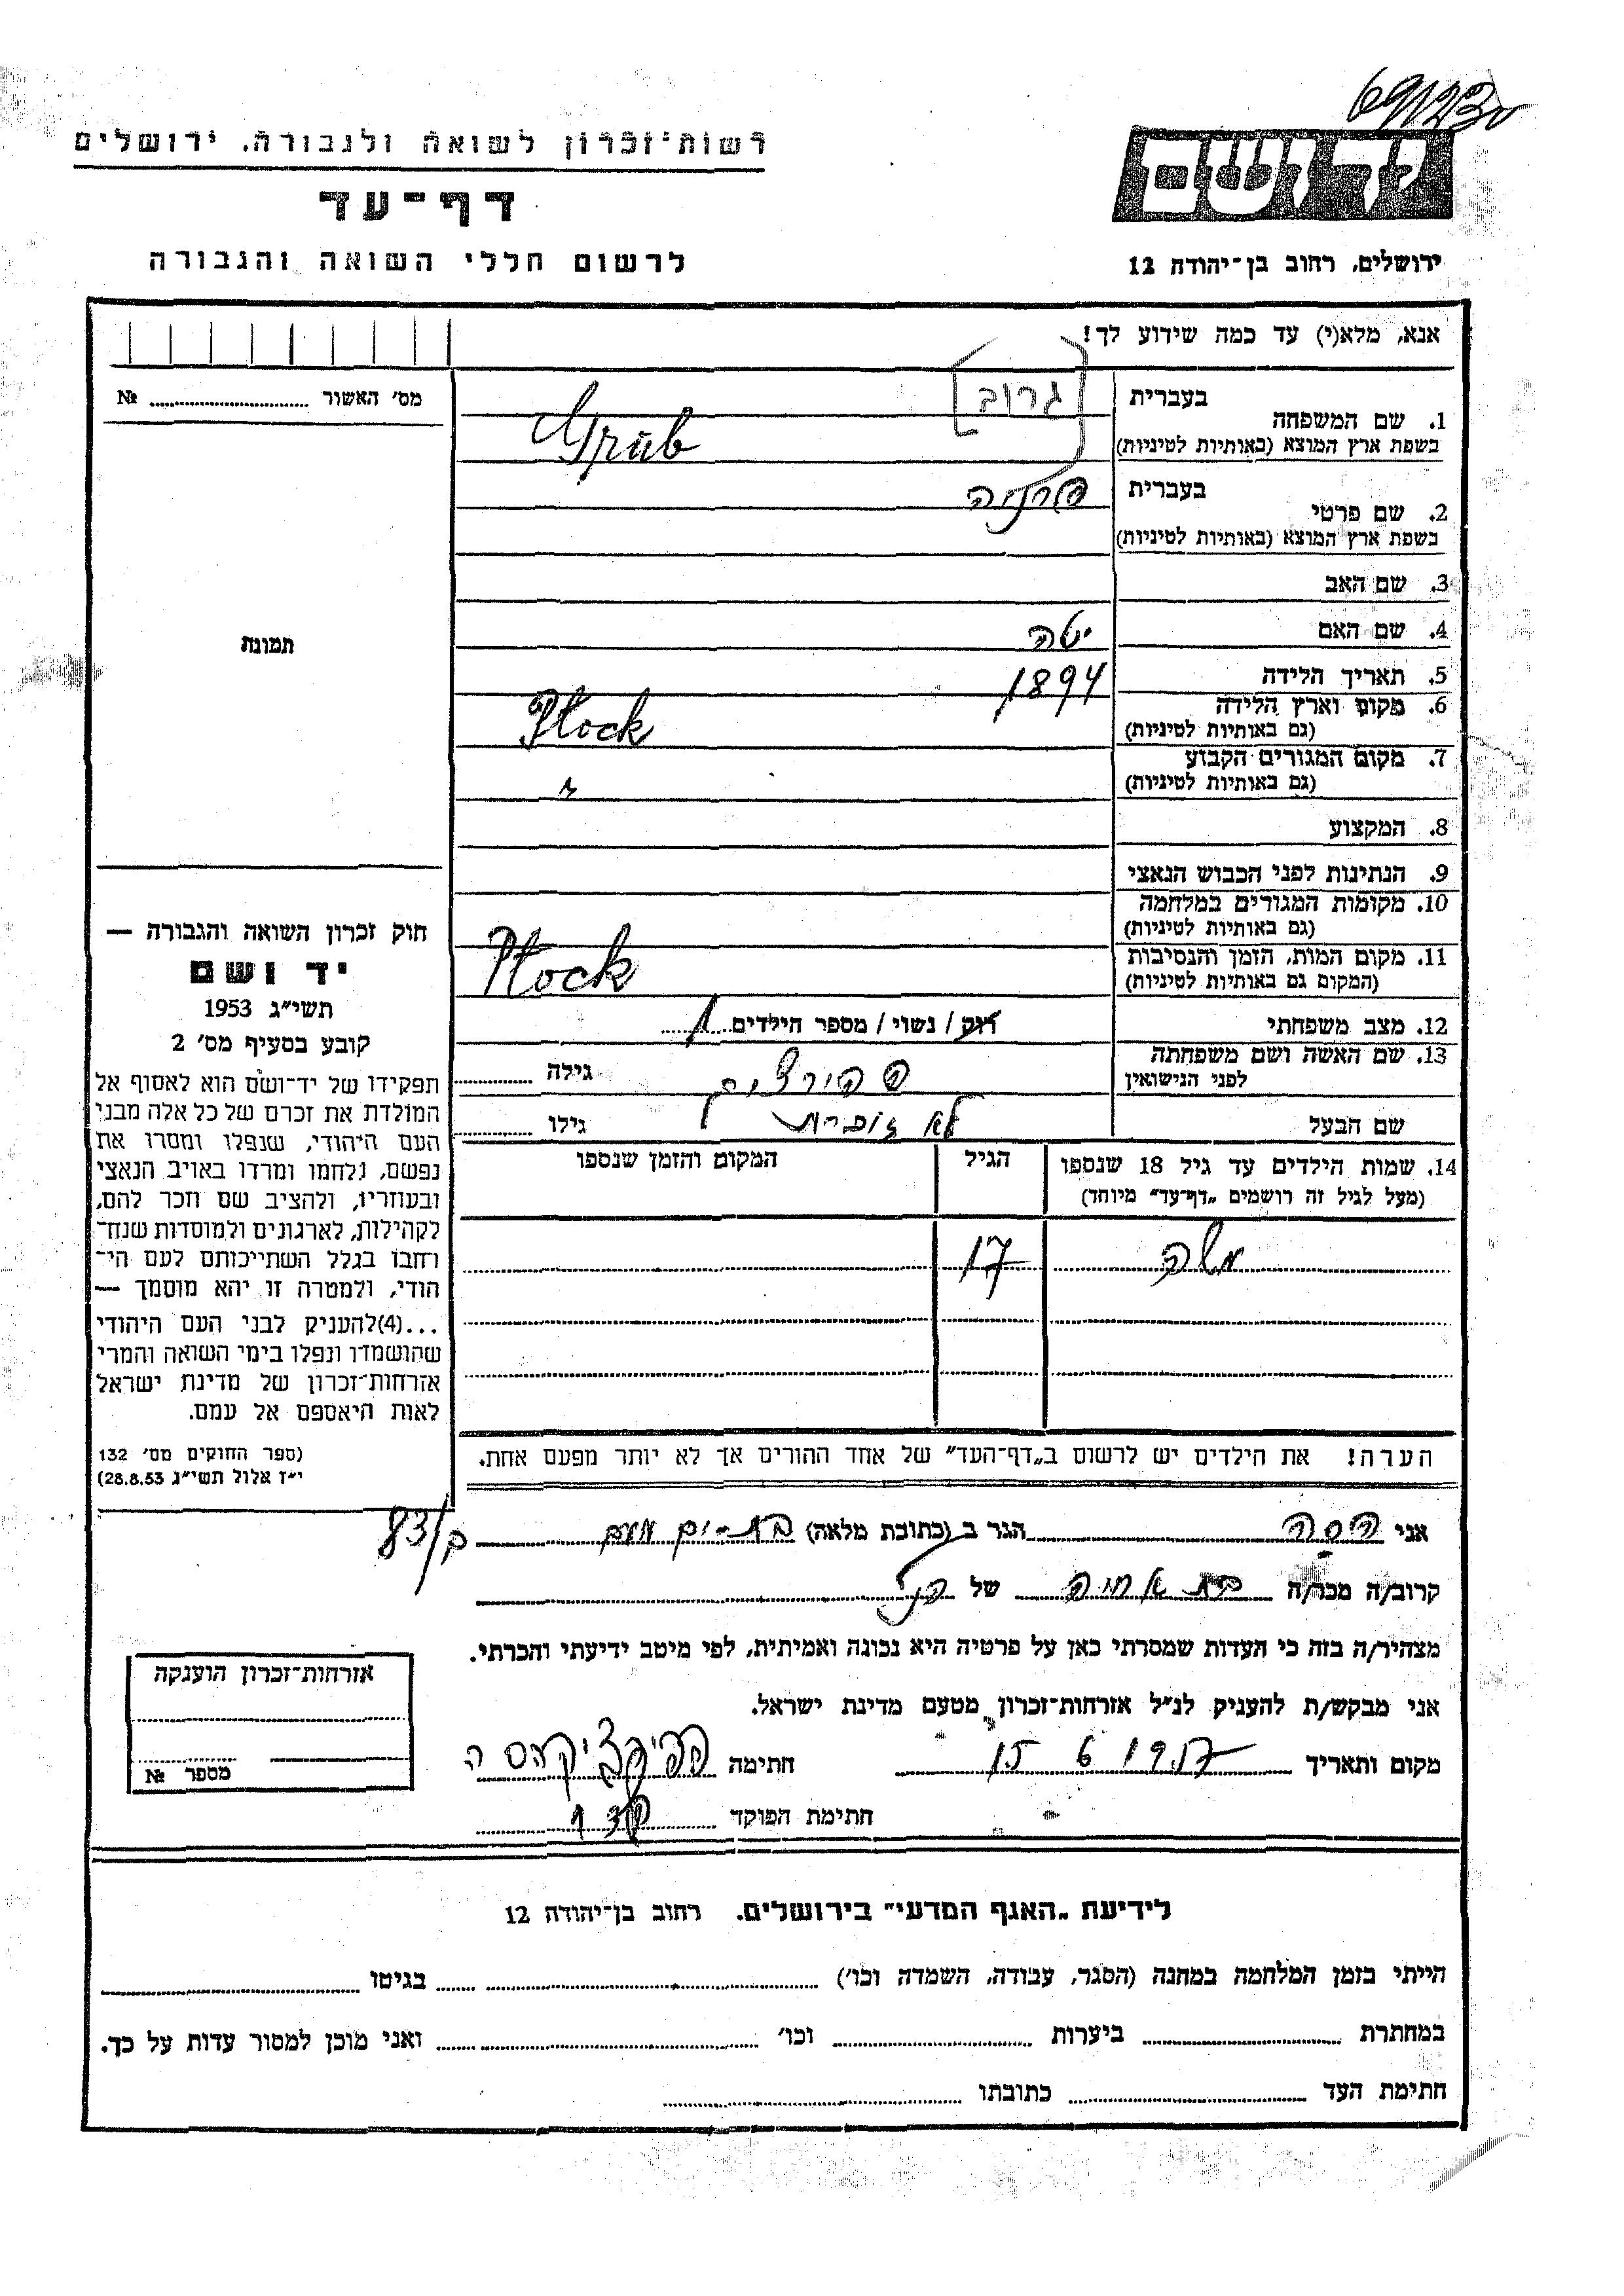 רשות־זכרון לשואה ולגבורה, ירושלים
דף־עד
לרשום חללי השואה והגבורה
יד ושם
ירושלים, רחוב בן־יהודה 12
אנא, מלא(י) עד כמה שידוע לך!
מס׳ האשור № 
1. שם המשפחה
בעברית [גרוב]
בשפת ארץ המוצא (באותיות לטיניות) Grüb
2. שם פרטי
בעברית
בשפת ארץ המוצא (באותיות לטיניות)
3. שם האב
4. שם האם יטה
5. תאריך הלידה 1894
6. מקום וארץ הלידה
(גם באותיות לטיניות) Płock
7. מקום המגורים הקבוע
(גם באותיות לטיניות)
8. המקצוע
9. הנתינות לפני הכבוש הנאצי
10. מקומות המגורים במלחמה
(גם באותיות לטיניות)
11. מקום המות, הזמן והנסיבות
(המקום גם באותיות לטיניות) Płock
12. מצב משפחתי רוק / נשוי / מספר הילדים 1
13. שם האשה ושם משפחתה
לפני הנישואין גילה
שם הבעל לא זוכרת גילו
14. שמות הילדים עד גיל 18 שנספו
(מעל לגיל זה רושמים „דף־עד״ מיוחד)
הגיל
המקום והזמן שנספו
משה 17
הערה! את הילדים יש לרשום ב„דף־העד״ של אחד ההורים אך לא יותר מפעם אחת.
תמונת
חוק זכרון השואה והגבורה —
יד ושם
תשי״ג 1953
קובע בסעיף מס׳ 2
תפקידו של יד־ושם הוא לאסוף אל
המולדת את זכרם של כל אלה מבני
העם היהודי, שנפלו ומסרו את
נפשם, נלחמו ומרדו באויב הנאצי
ובעוזריו, ולהציב שם וזכר להם,
לקהילות, לארגונים ולמוסדות שנח־
רחבו בגלל השתייכותם לעם הי־
הודי, ולמטרה זו יהא מוסמך —
...(4)להעניק לבני העם היהודי
שהושמדו ונפלו בימי השואה והמרי
אזרחות־זכרון של מדינת ישראל
לאות היאספם אל עמם.
(ספר החוקים מס׳ 132
י״ז אלול תשי״ג 28.8.53)
אני הסה הגר ב (כתובת מלאה) בת-ים 83/
קרוב/ה מכר/ה בת אחיה של הנ״ל
מצהיר/ה בזה כי העדות שמסרתי כאן על פרטיה היא נכונה ואמיתית, לפי מיטב ידיעתי והכרתי.
אני מבקש/ת להעניק לנ״ל אזרחות־זכרון מטעם מדינת ישראל.
מקום ותאריך 15 6 חתימה
חתימת הפוקד
אזרחות־זכרון הוענקה
מספר №
לידיעת „האגף המדעי״ בירושלים. רחוב בן־יהודה 12
הייתי בזמן המלחמה במחנה (הסגר, עבודה, השמדה וכו׳) בגיטו
במחתרת ביערות וכו׳ ואני מוכן למסור עדות על כך.
חתימת העד כתובתו